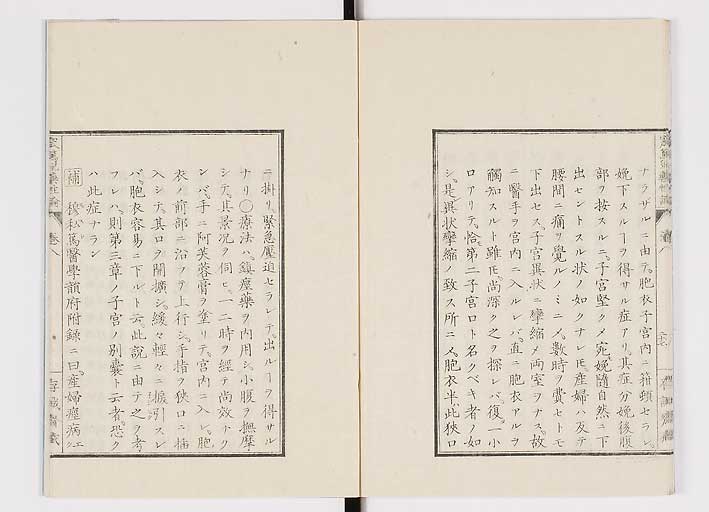 ナラザルニ由テ。胞衣子宮内ニ箝頸セラレ。
娩下スルヿヲ得サル症アリ。其症分娩後腹
部ヲ按スルニ。子宮堅クメ宛。娩隨自然ニ下
出セントスル状ノ如クナレ𪜈。産婦ハ反テ
腰間ニ痛ヲ覺ルノミニメ。數時ヲ費セトモ
下出セス。子宮異状ニ攣縮メ両室ヲナス。故
ニ醫手ヲ宮内ニ入ルレバ。直ニ胞衣アルヲ
觸知スルト雖𪜈。尚深ク之ヲ探レバ。復。一小
口アリテ。恰。第二子宮口ト名クベキ者ノ如
シ。是異状攣縮ノ致ス所ニメ。胞衣半此狹口
ニ掛リ。緊急壓迫セラレテ。出ルヿヲ得サル
ナリ〇療法ハ。鎮痙藥ヲ内用シ。小腹ヲ撫摩
シテ。其景况ヲ伺ヒ。一二時ヲ經テ尚效ナク
ンバ。手ニ阿芙蓉膏ヲ塗リテ。宮内ニ入レ。胞
衣ノ前部ニ沿フテ上行シ。手指ヲ狹口ニ挿
入シテ。其口ヲ開擴シ。緩々輕々ニ挽引スレ
バ。胞衣容易ニ下ルト云。此説ニ由テ之ヲ考
フレハ。則第三章ノ子宮ノ別嚢ト云者。恐ク
ハ此症ナラン
補 穆私篤醫學韻府附錄ニ曰。産婦痙病ニ
巻八